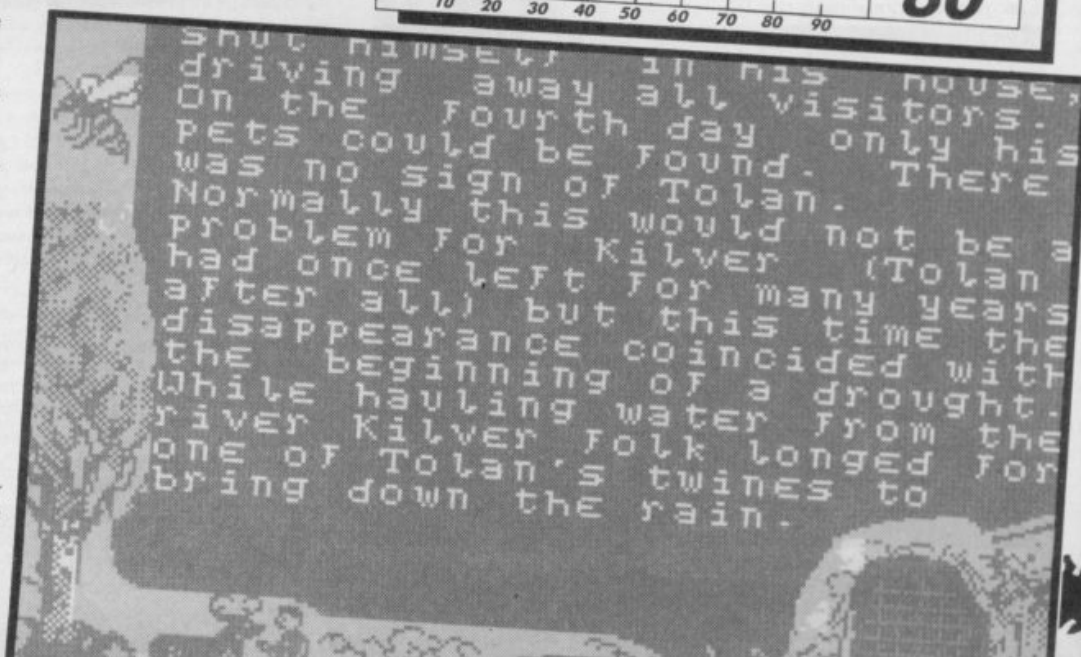 10 20 30 40 50 60 70 80 90
80
shut himself in his house,
driving away all visitors.
On the fourth day only his
pets could be found. There
was no sign of Tolan.
Normally this would not be a
problem for Kilver (Tolan
had once left for many years
after all) but this time the
disappearance coincided with
the beginning of a drought.
While hauling water from the
river Kilver folk longed for
one of Tolan's twines to
bring down the rain.